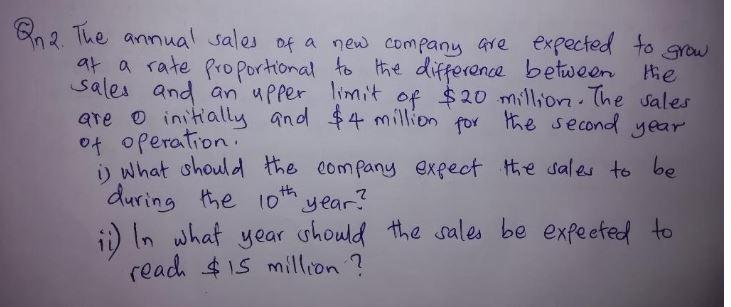 Qn 2. The annual sales of a new company are expected to grow
at a rate proportional to the difference between the
sales and an upper limit of $20 million. The sales
are 0 initially and $4 million for the second year
of operation.
i) What should the company expect the sales to be
during the 10th year?
ii) In what year should the sales be expected to
reach $15 million?